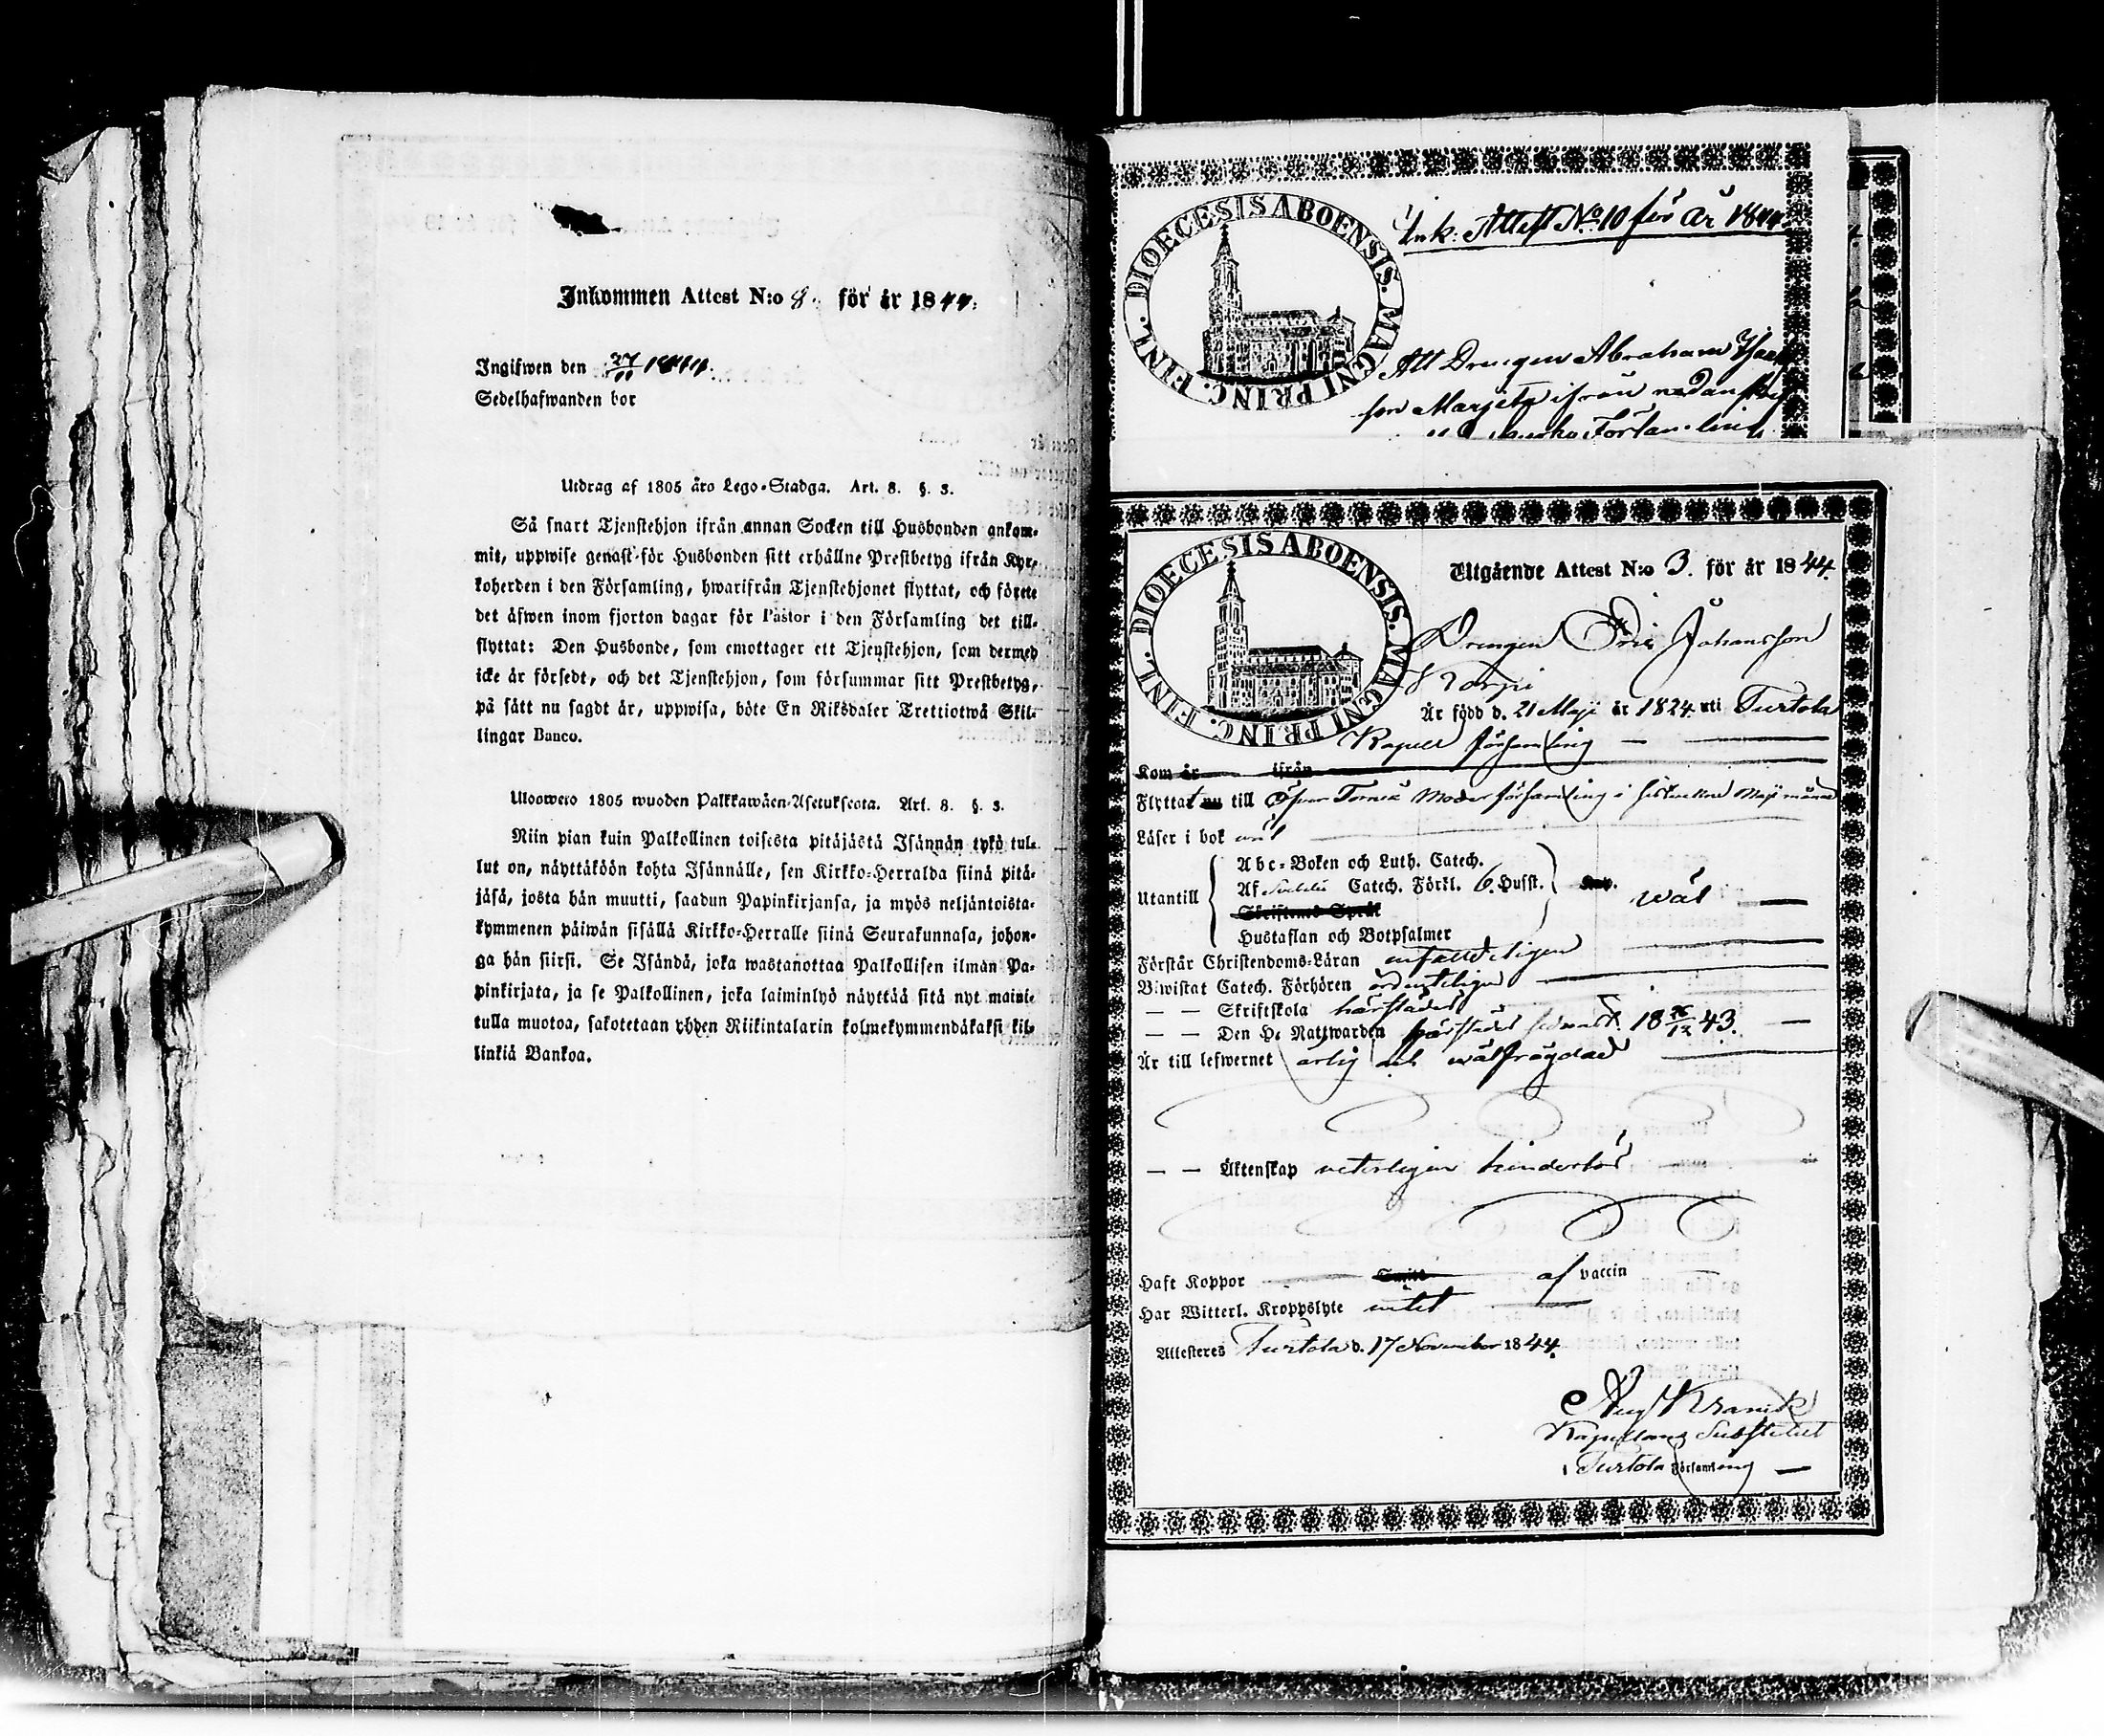 Inkommen Attest N:o 8. för år 1844.
Ingifwen den 27/11 1844.
Sedelhafwanden bor
Utdrag af 1805 års Lego-Stadga. Art. 8. §. 3.
Så snart Tjenstehjon ifrån annan Socken till Husbonden ankom-
mit, uppwise genast för Husbonden sitt erhållne Prestbetyg ifrån Kyr-
koherden i den Församling, hwarifrån Tjenstehjonet flyttat, och förete
det äfwen inom fjorton dagar för Pastor i den Församling det till-
flyttat: Den Husbonde, som emottager ett Tjenstehjon, som dermed
icke är försedt, och det Tjenstehjon, som försummar sitt Prestbetyg,
på sätt nu sagdt är, uppwisa, böte En Riksdaler Trettiotwå Skil-
lingar Banco.
Ulosweto 1805 wuoden Palkkawäen-Asetuksesta. Art. 8. §. 3.
Niin pian kuin Palkollinen toisesta pitäjästä Isännän tykö tul-
lut on, näyttäköön kohta Isännälle, sen Kirkko-Herralda siinä pitä-
jäsä, josta hän muutti, saadun Papinkirjansa, ja myös neljäntoista-
kymmenen päiwän sisällä Kirkko-Herralle siinä Seurakunnasa, johon-
ga hän siirsi. Se Isändä, joka wastanottaa Palkollisen ilman Pa-
pinkirjata, ja se Palkollinen, joka laiminlyö näyttää sitä nyt maini-
tulla muotoa, sakotetaan yhden Riikintalarin kolmekymmendäkaksi kil-
linkiä Bankoa.
DIOECESIS ABOENSIS. MAGNI PRINC. FINL.
Ink: Attest No 10 för år 1844
Att Drengen Abraham
son Marjeta ifrån
Församling
DIOECESIS ABOENSIS. MAGNI PRINC. FINL.
Utgående Attest N:o 3. för år 1844.
Drengen Johansson
Korpi
Är född d. 21 Maji år 1824 uti Turtola
Kapell församling
Kom år ifrån
Flyttat nu till Öfver Torneå Moderförsamling i Maji månad
Läser i bok wäl
Abc-Boken och Luth. Catech.
Utantill Af Catech. Förkl. 6. Husst. wäl
Skriftenes Språk
Hustaflan och Botpsalmer
Förstår Christendoms-Läran enfaldeligen
Biwistat Catech. Förhören ordenteligen
— — Skriftskola härstädes
— — Den H. Nattwarden härstädes 18 26/12 43.
Är till lefwernet ärlig och wälfrägdad
— — Äktenskap veterligen hinderlös
Haft Koppor af vaccin
Har Witterl. Kroppslyte intet
Attesteres Turtola d. 17 November 1844.
Aug Kranck
Kapellans Substitut
i Turtola Församling